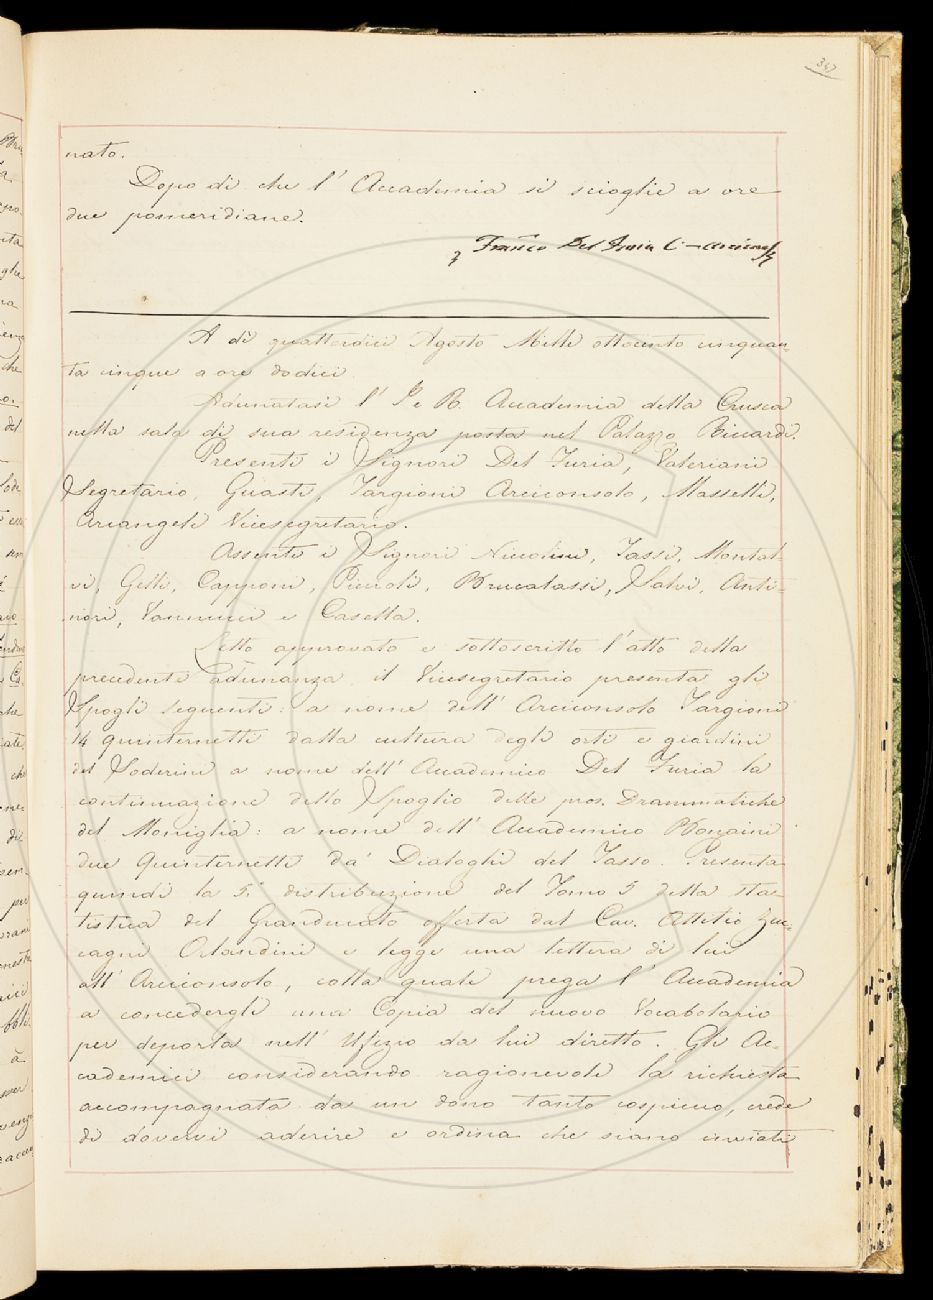 347
nato.
Dopo di che l' Accademia si scioglie a ore
due pomeridiane.
Del Furia
A dì quattordici Agosto Mille ottocento cinquan-
ta cinque a ore dodici
Adunatasi l' I e R. Accademia della Crusca
nella sala di sua residenza posta nel Palazzo Riccardi.
Presenti i Signori Del Furia, Valeriani
Segretario, Guasti, Targioni Arciconsolo, Masselli,
Arcangeli Vicesegretario.
Assenti i Signori Niccolini, Tassi, Montal-
vi, Gelli, Capponi, Piccioli, Brucalassi, Salvi, Anti-
nori, Vannucci e Casella.
Letto approvato e sottoscritto l'atto della
precedente adunanza il Vicesegretario presenta gli
Spogli seguenti: a nome dell' Arciconsolo Targioni
14 quinternetti dalla cultura degli orti e giardini
del Soderini a nome dell' Accademico Del Furia la
continuazione dello Spoglio delle pros. Drammatiche
del Moniglia: a nome dell' Accademico Bonaini
due Quinternetti da' Dialoghi del Tasso. Presenta
quindi la 5.ª distribuzione del Tomo 5 della sta-
tistica del Granducato offerta dal Cav. Attilio Zuc-
cagni Orlandini e legge una lettera di lui
all' Arciconsolo, colla quale prega l' Accademia
a concedergli una Copia del nuovo Vocabolario
per deporla nell' Ufizio da lui diretto. Gli Ac-
cademici considerando ragionevole la richiesta
accompagnata da un dono tanto cospicuo, crede
di dovervi aderire e ordina che siano inviati